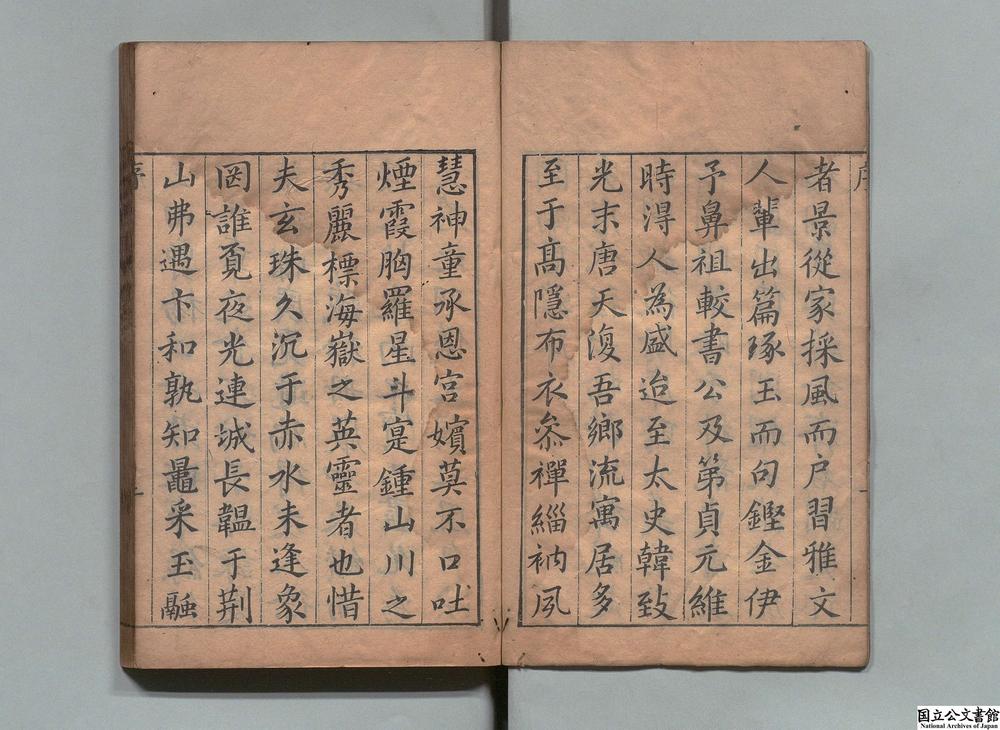 序
者景從家採風而户習雅文
人輩出篇琢玉而句鏗金伊
予鼻祖較書公及第貞元維
時淂人為盛迨至太史韓致
光末唐天復吾鄉流寓居多
至于髙隱布衣叅禪緇衲夙
慧神童承恩宮嬪莫不口吐
煙霞胸羅星斗寔鍾山川之
秀麗標海嶽之英靈者也惜
夫玄珠久沉于赤水未逢象
罔誰覔夜光連城長韞于荆
山弗遇卞和孰知鼂采玉融
序
国立公文書館
National Archives of Japan